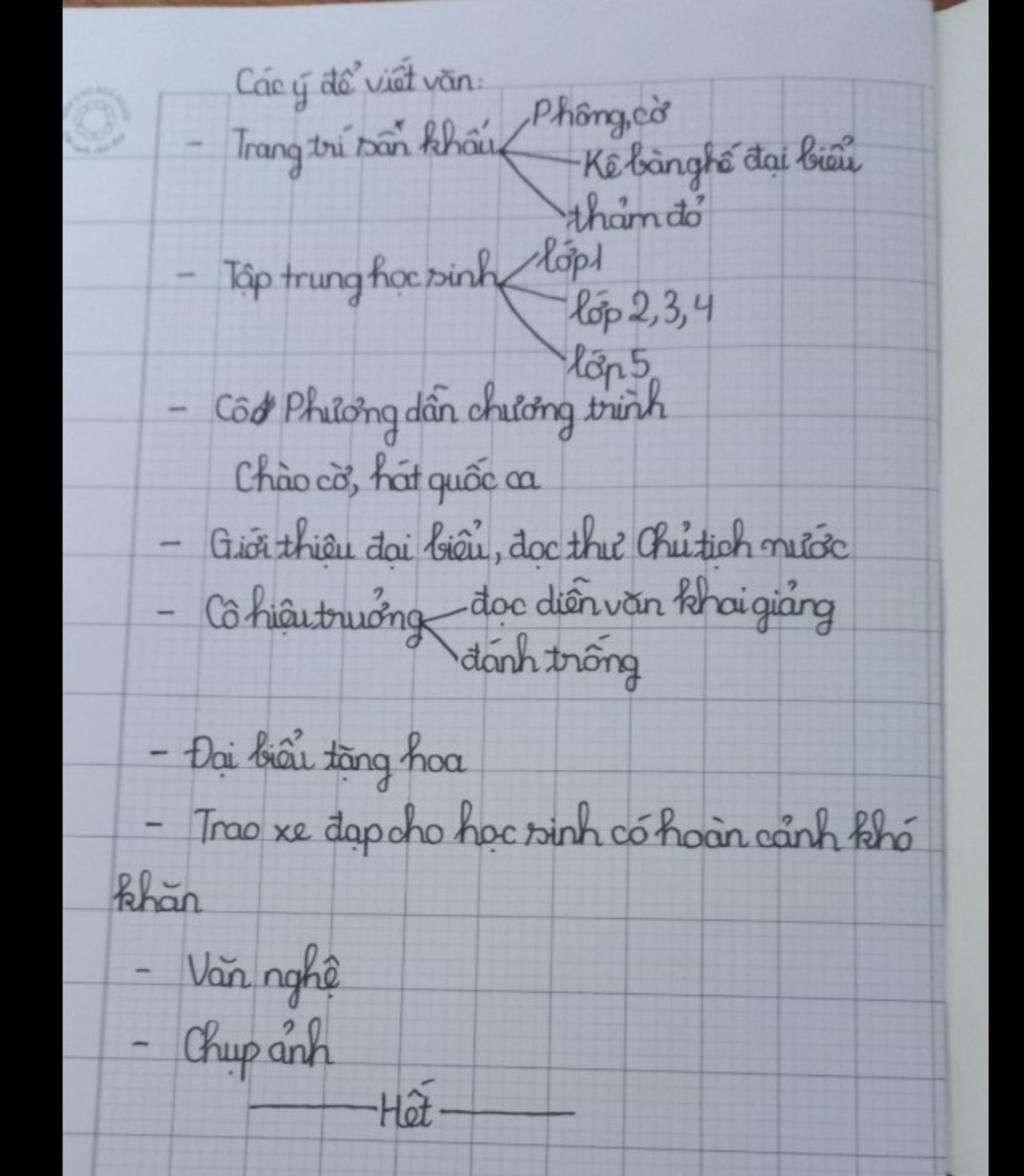 Các ý để viết văn:
- Trang trí sân khấu
Phông, cờ
Kê bàn ghế đại biểu
thảm đỏ
- Tập trung học sinh
lớp 1
lớp 2, 3, 4
lớp 5
- Cô Phương dẫn chương trình
Chào cờ, hát quốc ca
- Giới thiệu đại biểu, đọc thư Chủ tịch nước
- Cô hiệu trưởng
đọc diễn văn khai giảng
đánh trống
- Đại biểu tặng hoa
- Trao xe đạp cho học sinh có hoàn cảnh khó
khăn
- Văn nghệ
- Chụp ảnh
Hết